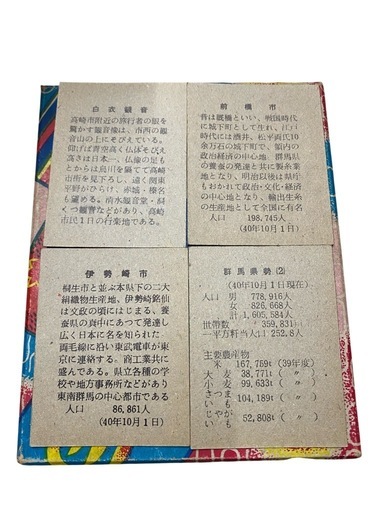 白衣観音
高崎市附近の旅行者の眼を
驚かす観音像は、市西の観
音山の上にそびえている。
仰げば青空高く仏体そびえ
高さは日本一、仏像の足も
とからは烏川を隔てて高崎
市街を見下ろし、遠く関東
平野がひらけ、赤城、榛名
も望める。清水観音堂・洞
くつ観音などがあり、高崎
市民1日の行楽地である。
前橋市
昔は厩橋といい、戦国時代
に城下町として生れ、江戸
時代には酒井、松平両氏10
余万石の城下町で、領内の
政治経済の中心地、群馬県
の養蚕の発達と共に製糸業
地となり、明治以後は県庁
もおかれて政治・文化・経済
の中心地となり、輸出生糸
の生産地として全国に有名
人口 198,745人
(40年10月1日)
伊勢崎市
桐生市と並ぶ本県下の二大
絹織物生産地、伊勢崎銘仙
は文政の頃にはじまる、養
蚕県の真中にあつて発達し
広く日本に名を知られた。
両毛線に沿い東武電車が東
京に連絡する。商工業共に
盛んである。県立各種の学
校や地方事務所などがあり
東南群馬の中心都市である
人口 86,861人
(40年10月1日)
群馬県勢(2)
(40年10月1日現在)
人口 男 778,916人
女 826,668人
計 1,605,584人
世帯数 359,831
一平方料当人口 252.8人
主要農産物
米 167,759t (39年度)
大麦 38,771t ( 〃 )
小麦 99,633t ( 〃 )
さつまいも 104,189t ( 〃 )
じゃがいも 52,808t ( 〃 )